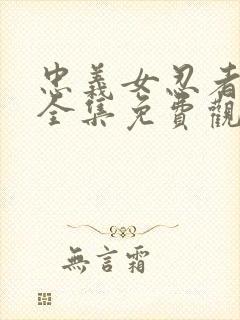 忠義女忍者
全集免費觀
無言霜